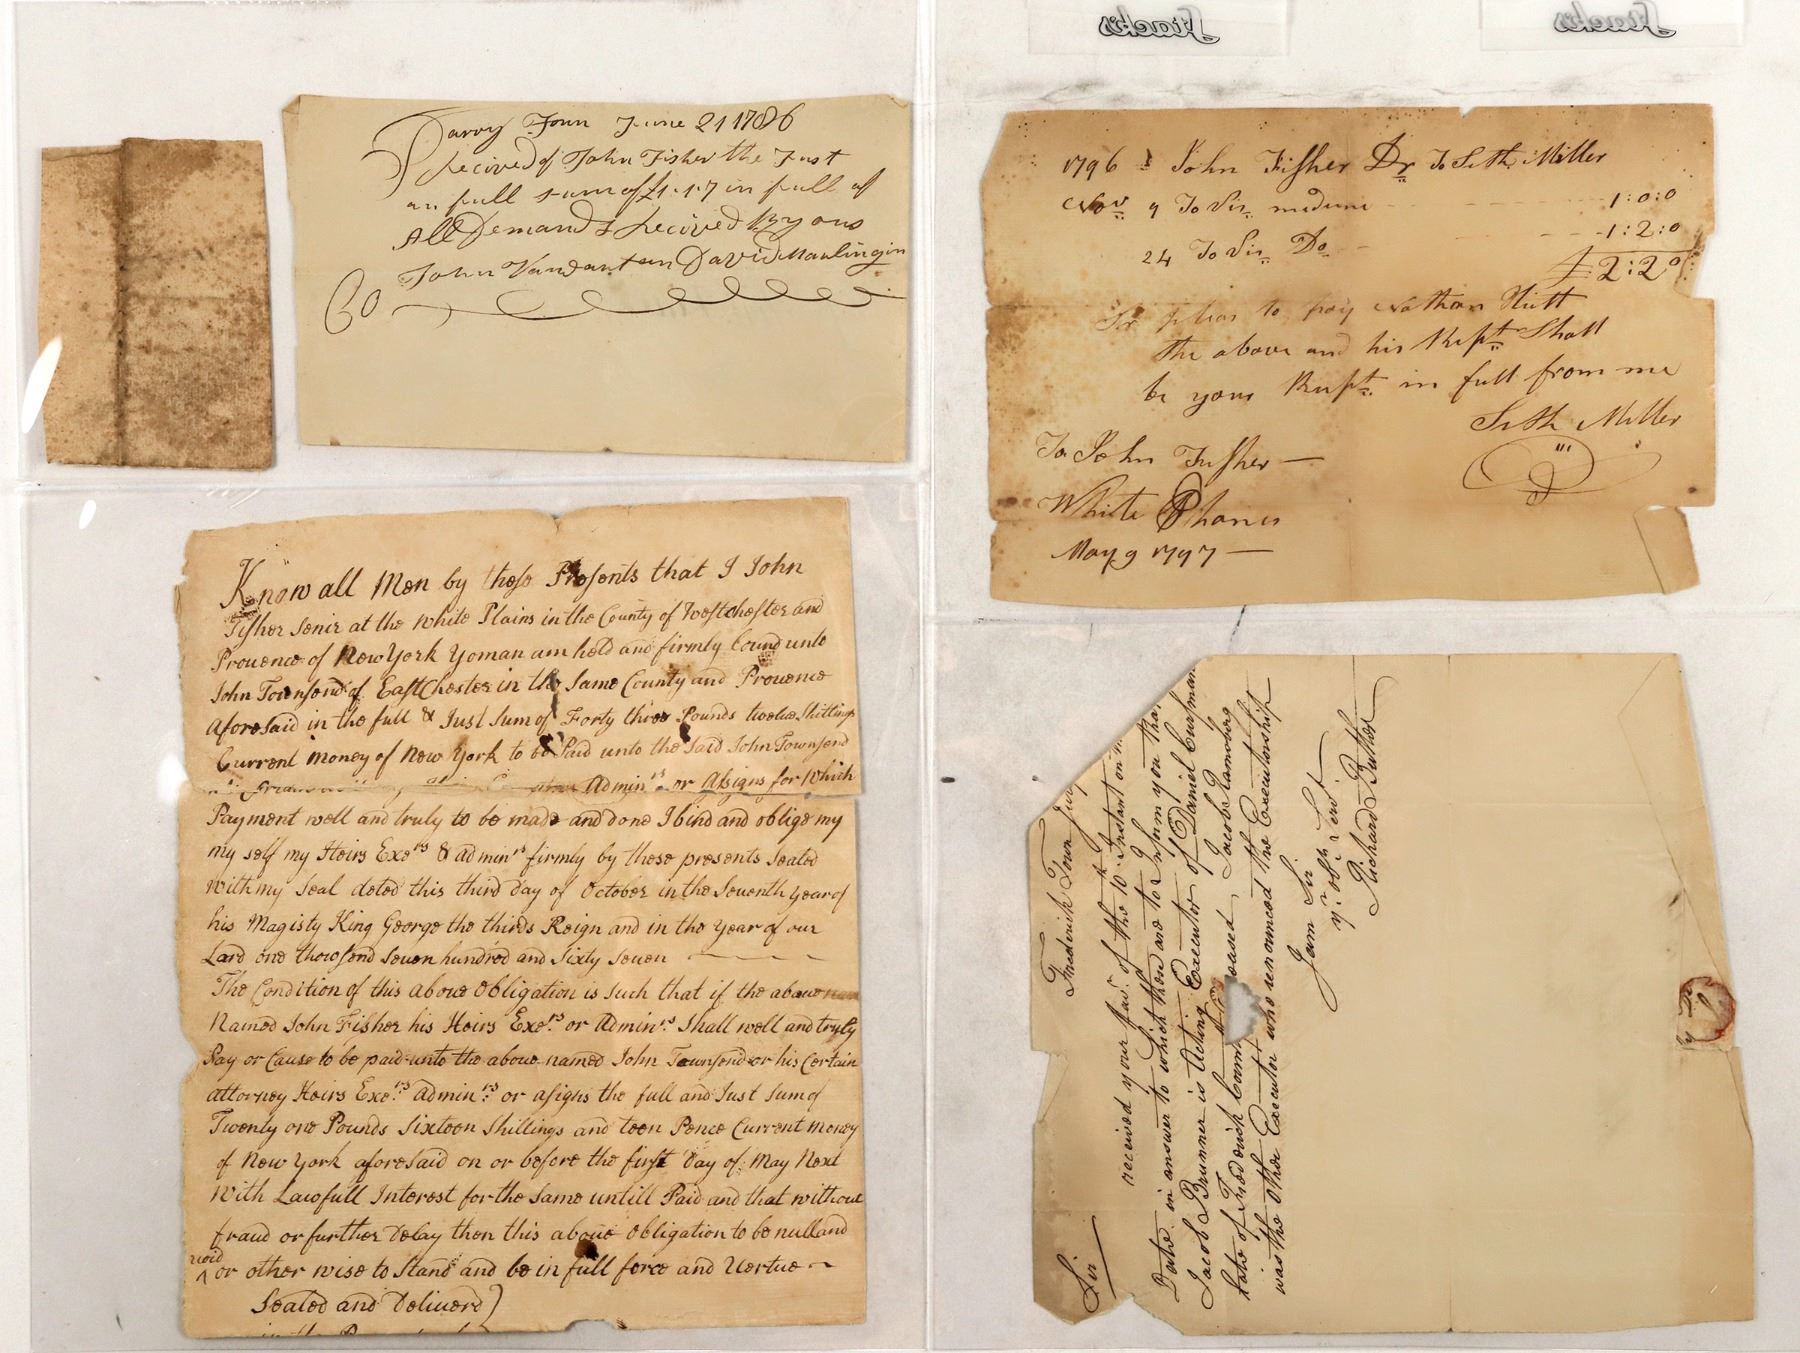 Stack's
Stack's
Darvy Town June 21 1786
Recived of John Fisher the Just
an full sum of £1.17 in full of
All Demands Recived By ous
John Vandanten David Manlingin
Co
1796 John Fisher Dr To Seth Miller
Nov 9 To Sir medime 1:0:0
24 To Sir Do 1:2:0
£2:2:0
Sr pleas to pay Nathan
the above and his Resept Shall
be your Resept in full from me
Seth Miller
To John Fisher
White Planes
May 9 1797
Know all Men by these Presents that I John
Fisher Senir at the White Plains in the County of Westchester and
Provence of New York Yoman am held and firmly bound unto
John Townsend of EastChester in the Same County and Provence
aforeSaid in the full & Just Sum of Forty three Pounds twelve Shillings
Current Money of New York to be Paid unto the Said John Townsend
Admin.rs or Assigns for Which
Payment well and truly to be made and done I bind and oblige my
my self my Heirs Exe.rs & admin.rs firmly by these presents Sealed
With my Seal deted this third Day of October in the Seventh year of
his Magisty King George the thirds Reign and in the year of our
Lard one thowsend Seven hundred and Sixty Seven
The Condition of this above Obligation is Such that if the above
Named John Fisher his Heirs Exe.rs or Admin.rs Shall well and truly
Pay or Cause to be paid unto the above named John Townsend or his Certain
attorney Heirs Exe.rs admin.rs or asigns the full and Just Sum of
Twenty one Pounds Sixteen Shillings and teen Pence Current Money
of New York aforeSaid on or before the first Day of May Next
With Lawfull Interest for the Same untill Paid and that without
fraud or further Delay then this above Obligation to be null and
void
^ or other wise to Stand and be in full force and Vertue
Sealed and Deliverd
in the
Frederick Town
Sir
received your fav.r of the 10.th Instant on
Date in answer to which these are to Inform you that
Jacob Brunner is Acting Executor of Daniel
late of Frederick County Jacob Ramsburg
was the other Executor who renounced the Executorship
I am Sir
y.r ob.t Serv.t
Richard Butler